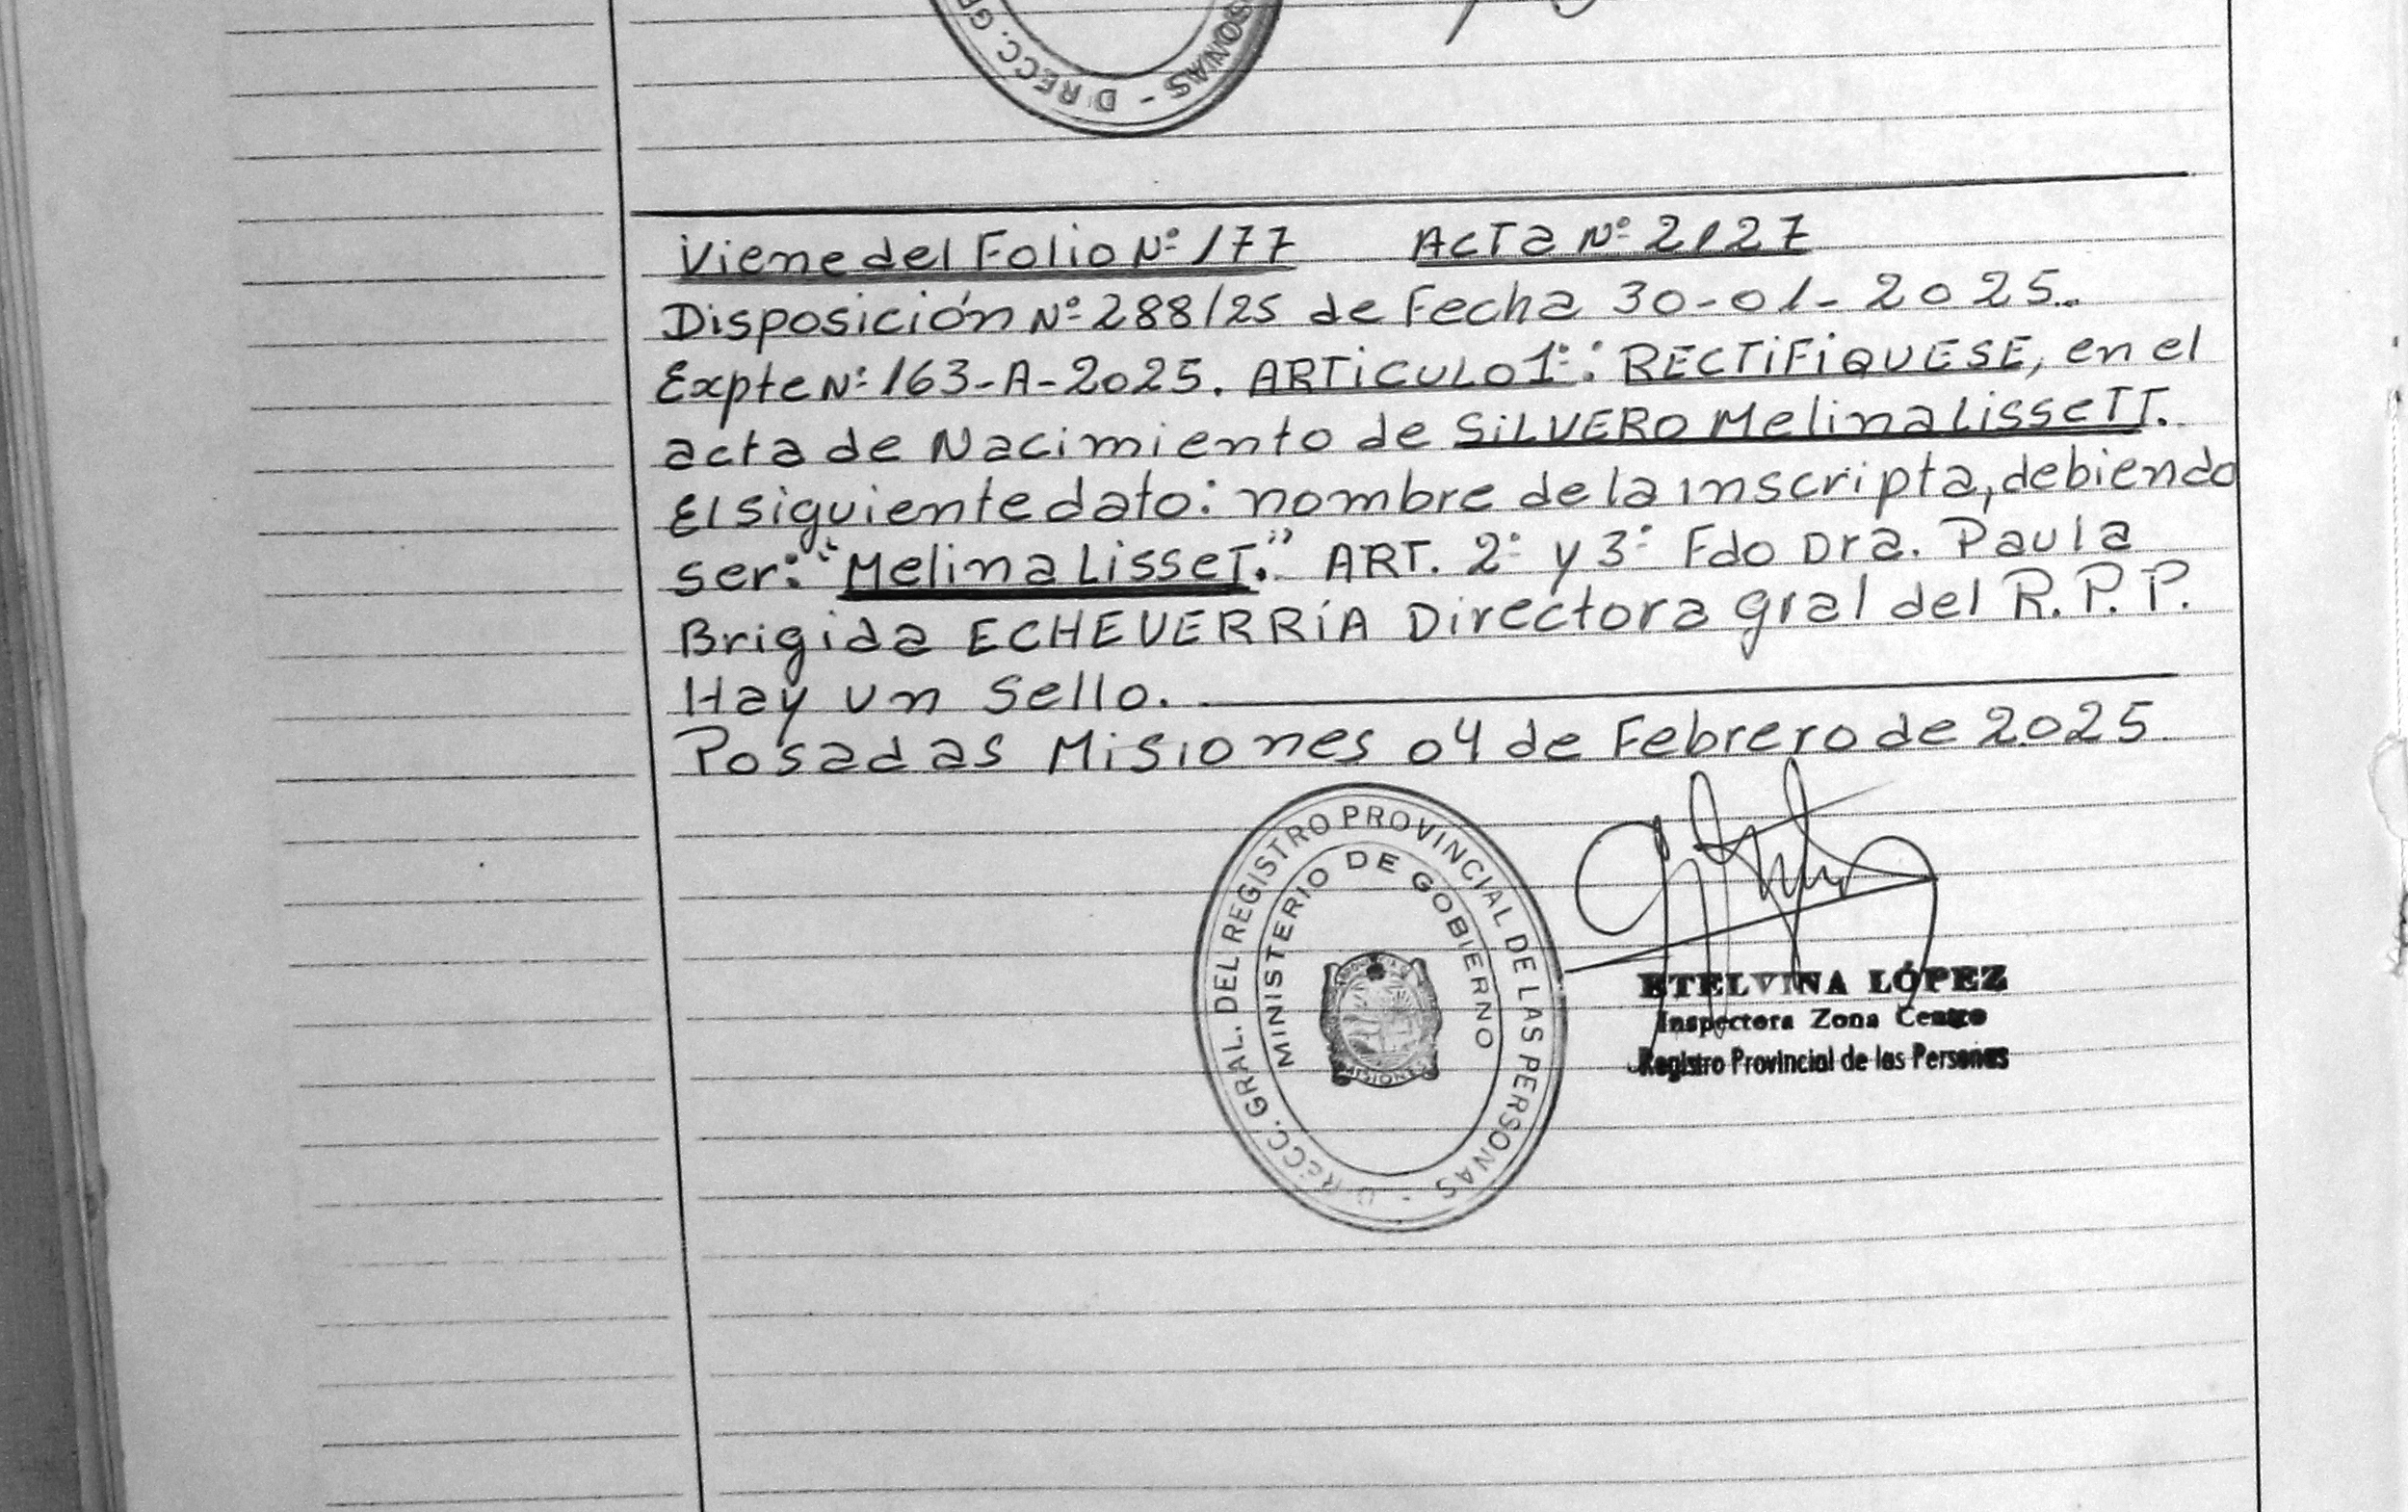 DIRECC. GE
SONAS -
Viene del Folio Nº 177 Acta Nº 2127
Disposición Nº 288/25 de Fecha 30-01-2025..
Expte Nº 163-A-2025. ARTICULO 1º: RECTIFIQUESE, en el
acta de Nacimiento de SILVERO Melina Lissett.
El siguiente dato: nombre de la inscripta, debiendo
ser: "Melina Lisset." ART. 2º y 3º Fdo Dra. Paula
Brigida ECHEVERRÍA Directora gral del R.P.P.
Hay un sello.
Posadas Misiones 04 de Febrero de 2025.
DIRECC. GRAL. DEL REGISTRO PROVINCIAL DE LAS PERSONAS -
MINISTERIO DE GOBIERNO
MISIONES
ETELVINA LÓPEZ
Inspectora Zona Centro
Registro Provincial de las Personas